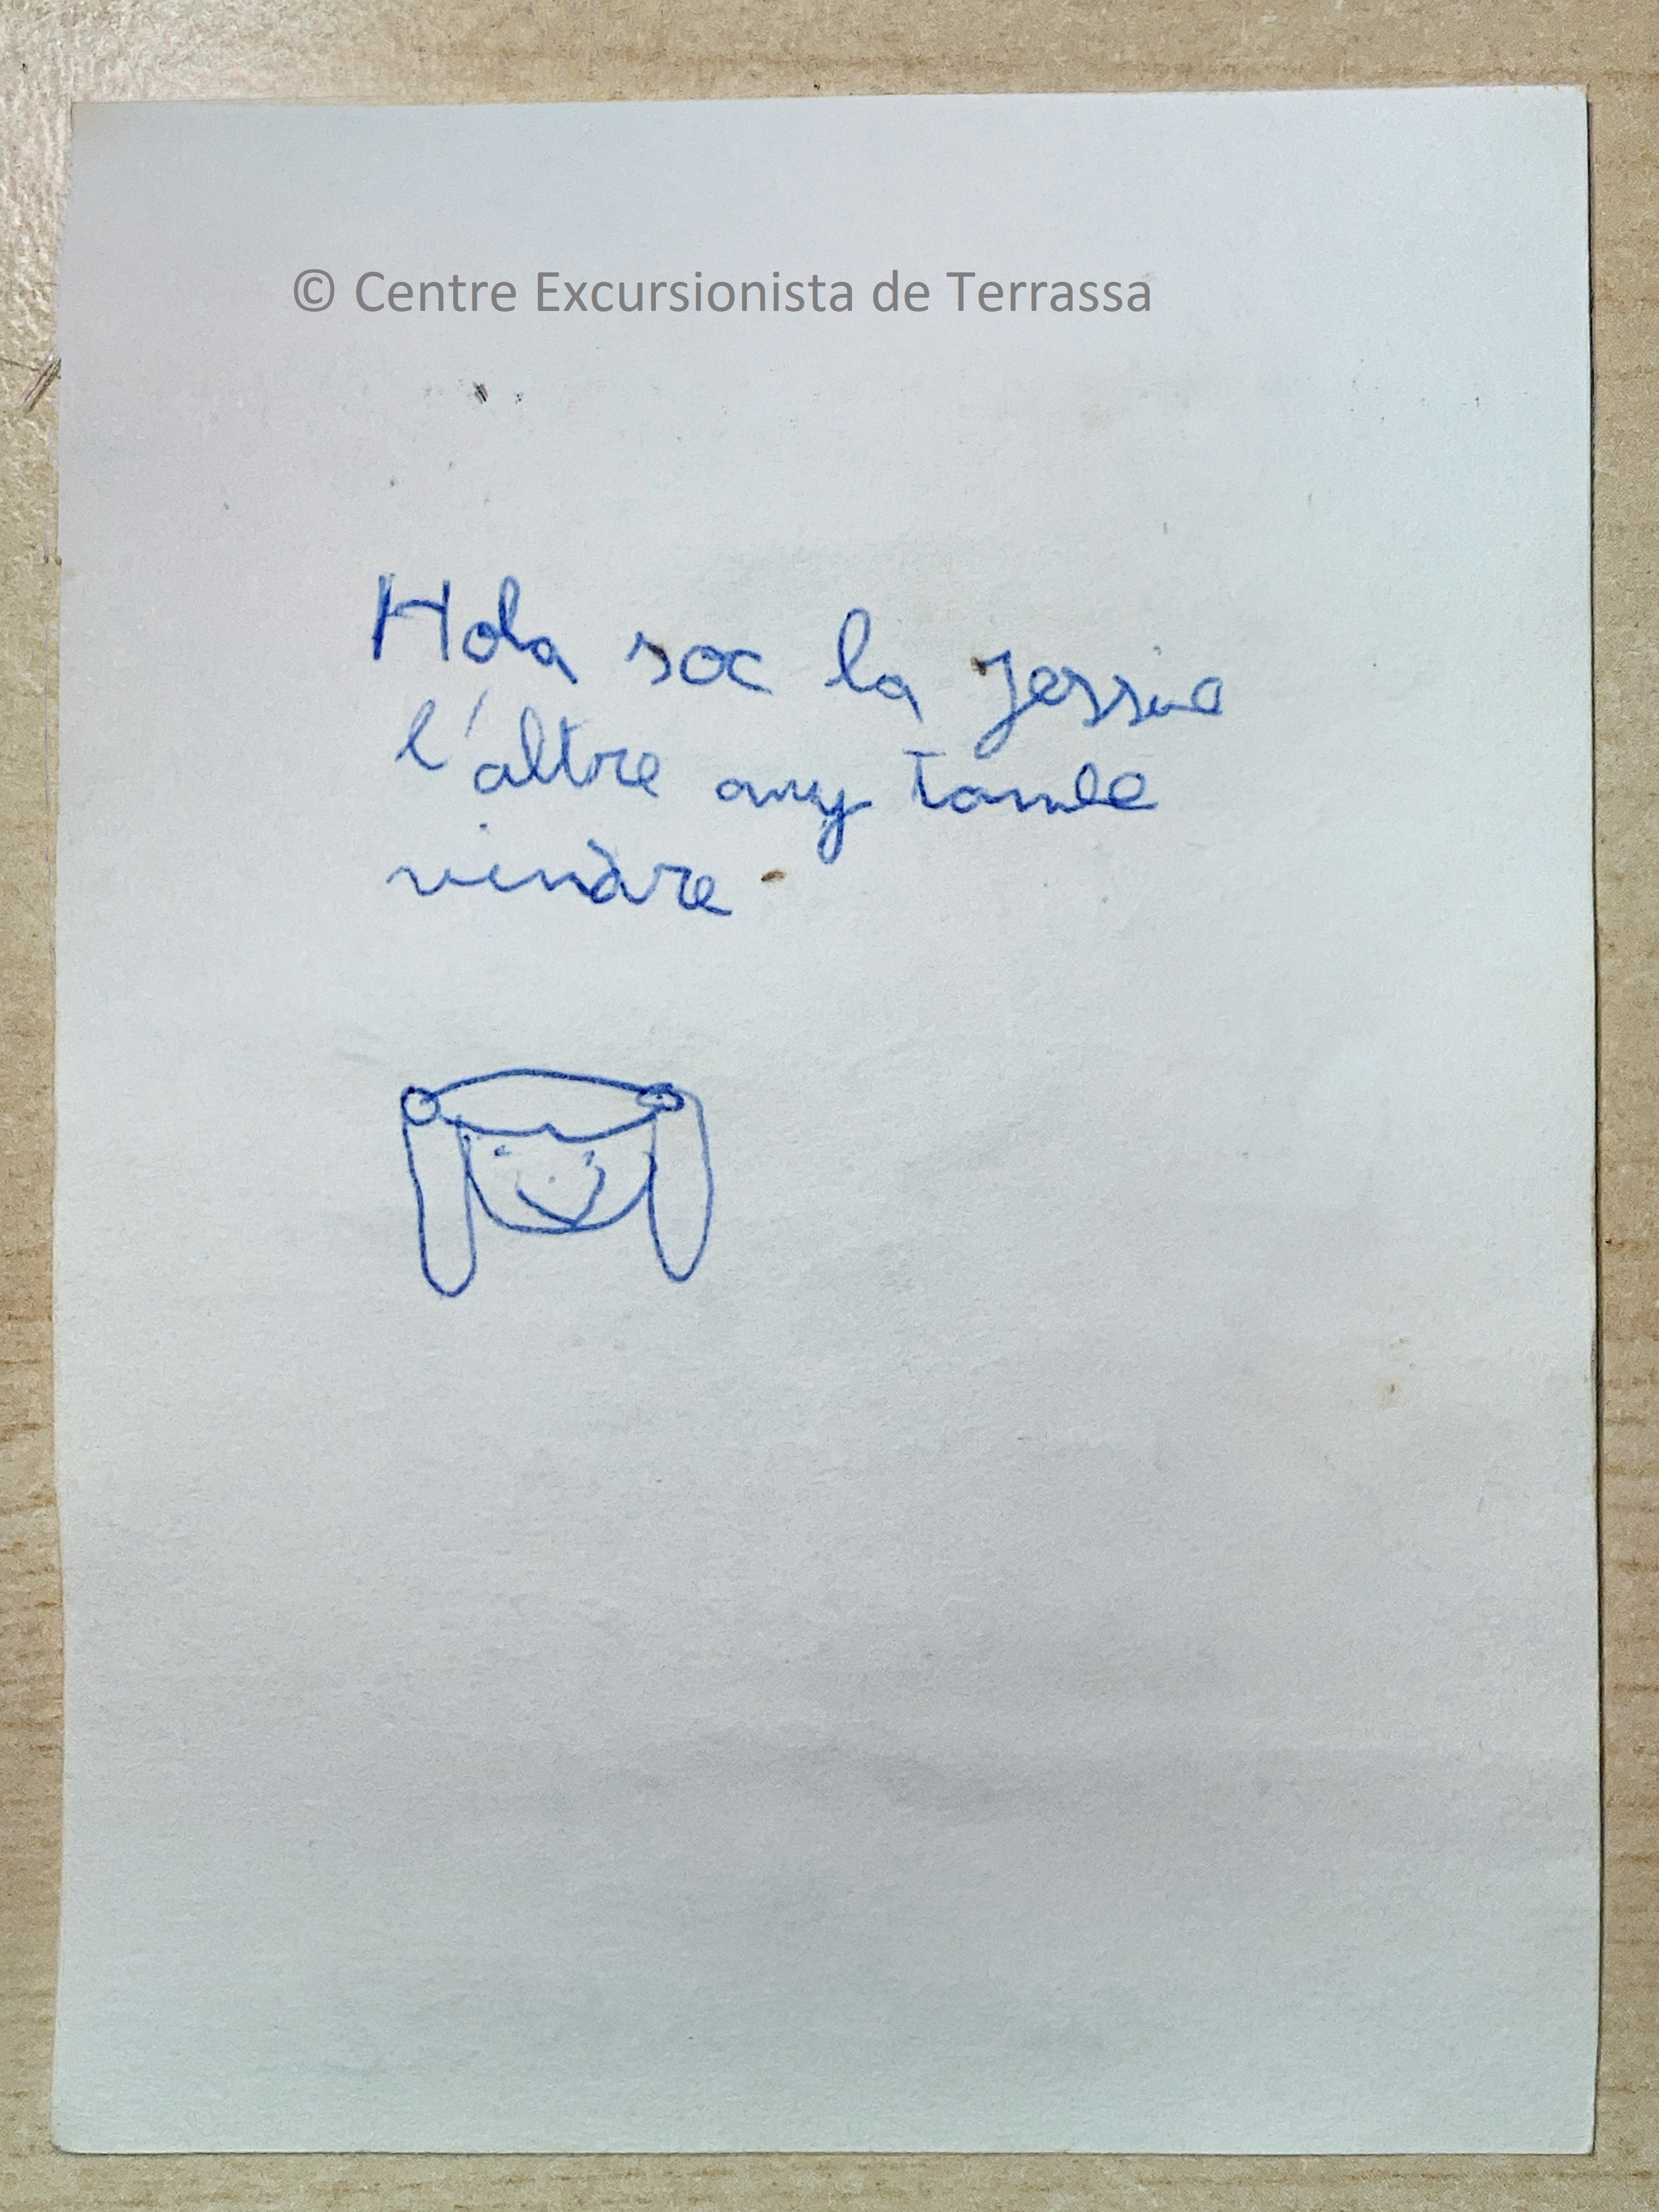 © Centre Excursionista de Terrassa
Hola soc la Jessie
l'altre any tambe
vindre